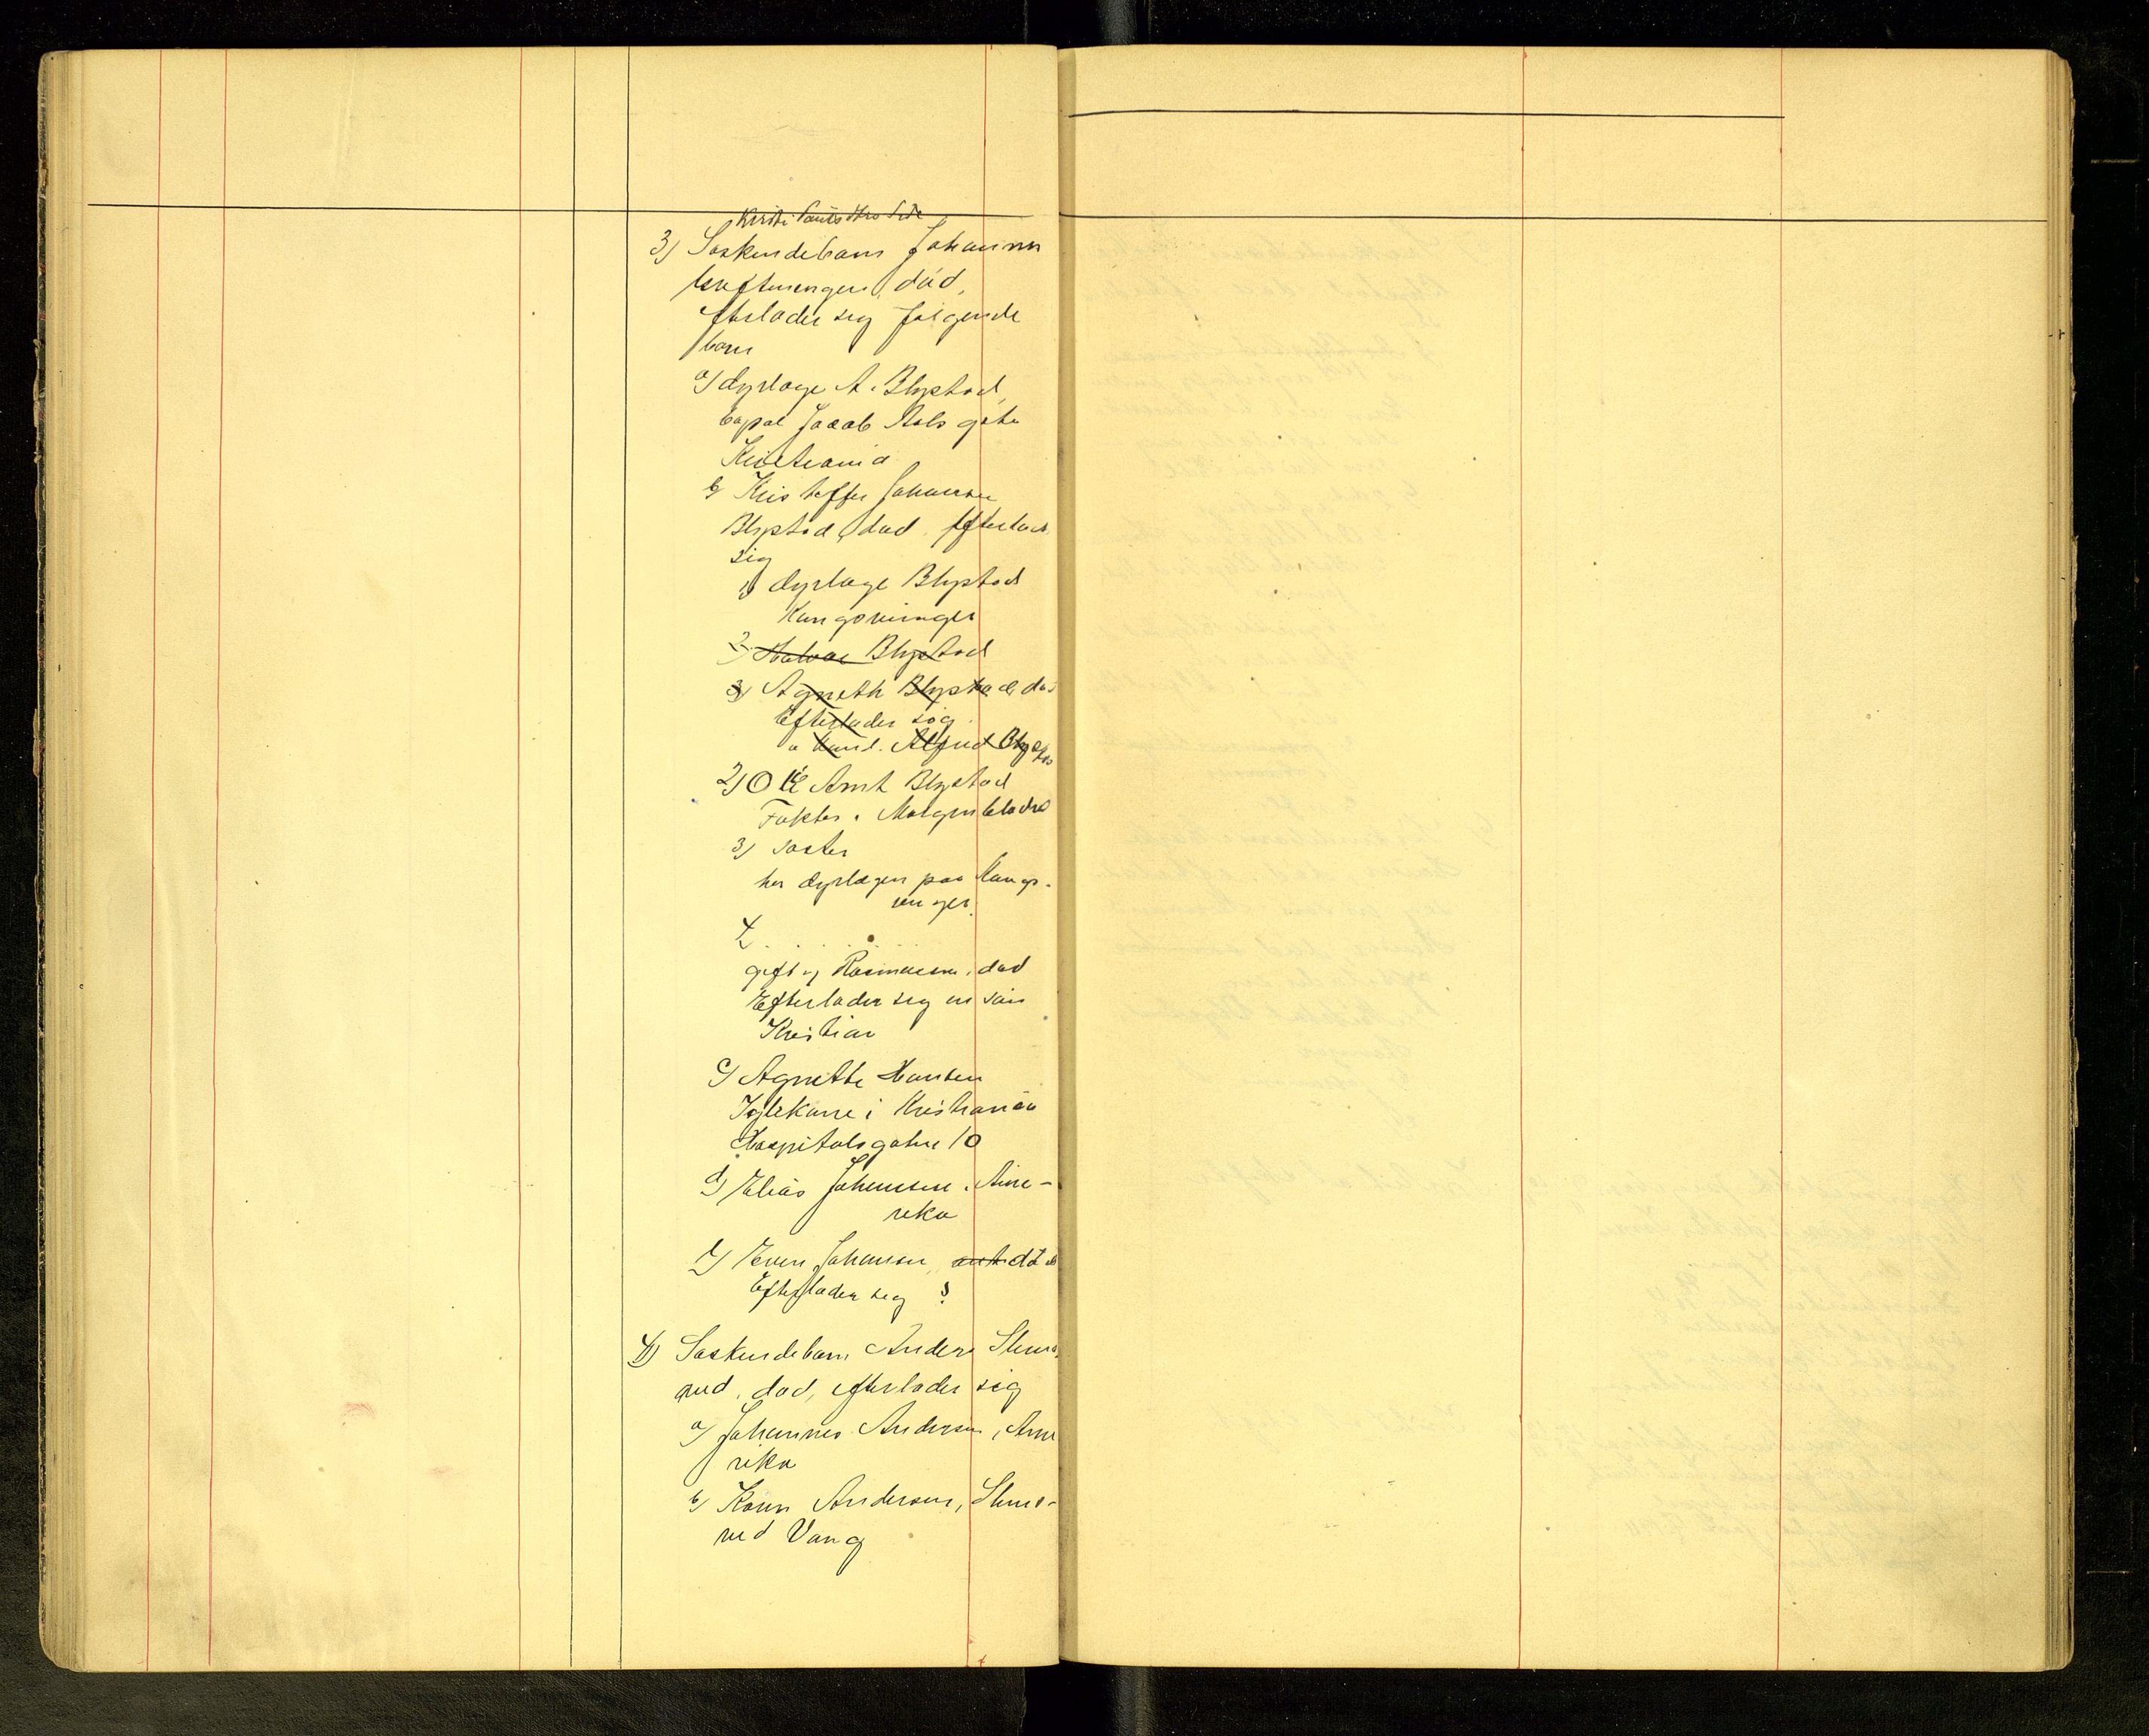 Kirsti Pauls dtrs Side
3) Søskendebarn Johannes
død,
efterlader sig følgende
barn
a) dyrlæge A. Blystad,
Jacob Aals gate
Kristiania
b) Kristoffer Johansen
Blystad, død. Efterlad.
sig
1) dyrlæge Blystad
Kongsvinger
2) Halvor Blystad
3) Agneth Blystad, død
Efterlader sig
a Alfred Blystad
2) Ole Arnt Blystad
Faktor i Morgenbladet
3) søster
hos dyrlægen paa Kongs-
vinger.
4 . . . . . .
gift m Rasmussen, død
Efterlader sig en søn
Kristian
c) Agnethe Hansen
i Kristiania
Hospitalsgaten 10
d) Elias Johansen, Ame-
rika
e) Even Johansen, død
Efterlader sig ?
4) Søskendebarn Anders Stens-
rud, død, efterlader sig
a) Johannes Andersen, Ame
rika
b) Karen Andersen, Stens-
rud Vang